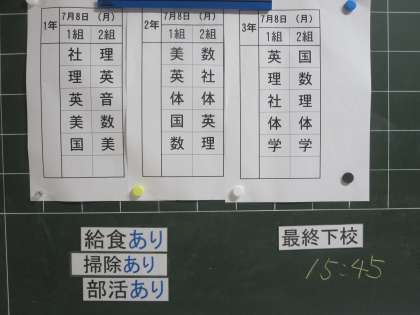 1年 7月8日 (月)
1組 2組
社 理
理 英
英 音
美 数
国 美
2年 7月8日 (月)
1組 2組
美 数
英 社
体 体
国 英
数 理
3年 7月8日 (月)
1組 2組
英 国
理 数
社 理
体 体
学 学
給食あり
掃除あり
部活あり
最終下校
15:45